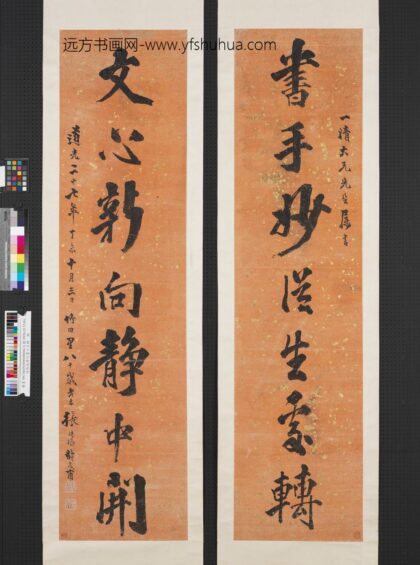 远方书画网-www.yfshuhua.com
一清大兄先生屬書
書手妙從生處轉
文心新向靜中開
道光二十七年丁未十月三日竹田里八十歲張廷濟叔未甫